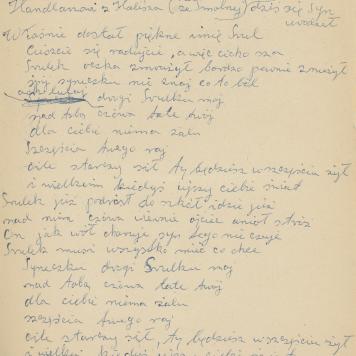 Handlarzowi z Halisza (ze Smolnej) dziś się syn
urodził
Właśnie dostał piękne imię Srul
Cieszcie się radujcie, a więc cicho sza
Srulek oczka zmrużył bardzo pewnie zmużył
śpij syneczku nie znaj co to ból
drogi Srulku mój
nad tobą czuwa tate twój
dla ciebie niema żalu
Szczęścia twego raj
ile starczy sił, ty będziesz w szczęściu żył
i wielkim kiedyś ujrzy ciebie świat
Srulek już podrósł do szkół idzie już
nad nim czuwa wiernie ojciec anioł stróż
On jak wół haruje syn tego nie czuje
Srulek musi wszystko mieć co chce
Syneczku drogi Srulku mój
nad tobą czuwa tate twój
dla ciebie niema żalu
szczęścia twego raj
ile starczy sił, ty będziesz w szczęściu żył
i wielkim kiedyś ujrzy ciebie świat